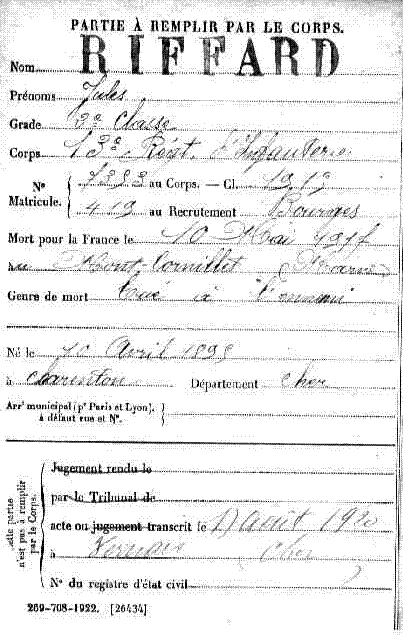 PARTIE À REMPLIR PAR LE CORPS.
Nom RIFFARD
Prénoms Jules
Grade 2e Classe
Corps 13e Regt. d'Infanterie
Nº Matricule. au Corps. — Cl.
419 au Recrutement Bourges
Mort pour la France le 10 Mai 1917
au Mont Cornillet (Marne)
Genre de mort tué à l'ennemi
Né le 10 Avril
à Charenton Département Cher
Arrt municipal (pr Paris et Lyon), à défaut rue et Nº.
Cette partie n'est pas à remplir par le Corps.
Jugement rendu le
par le Tribunal de
acte ou jugement transcrit le Août 1920
à Vernais Cher
Nº du registre d'état civil
269-708-1922. [26434]